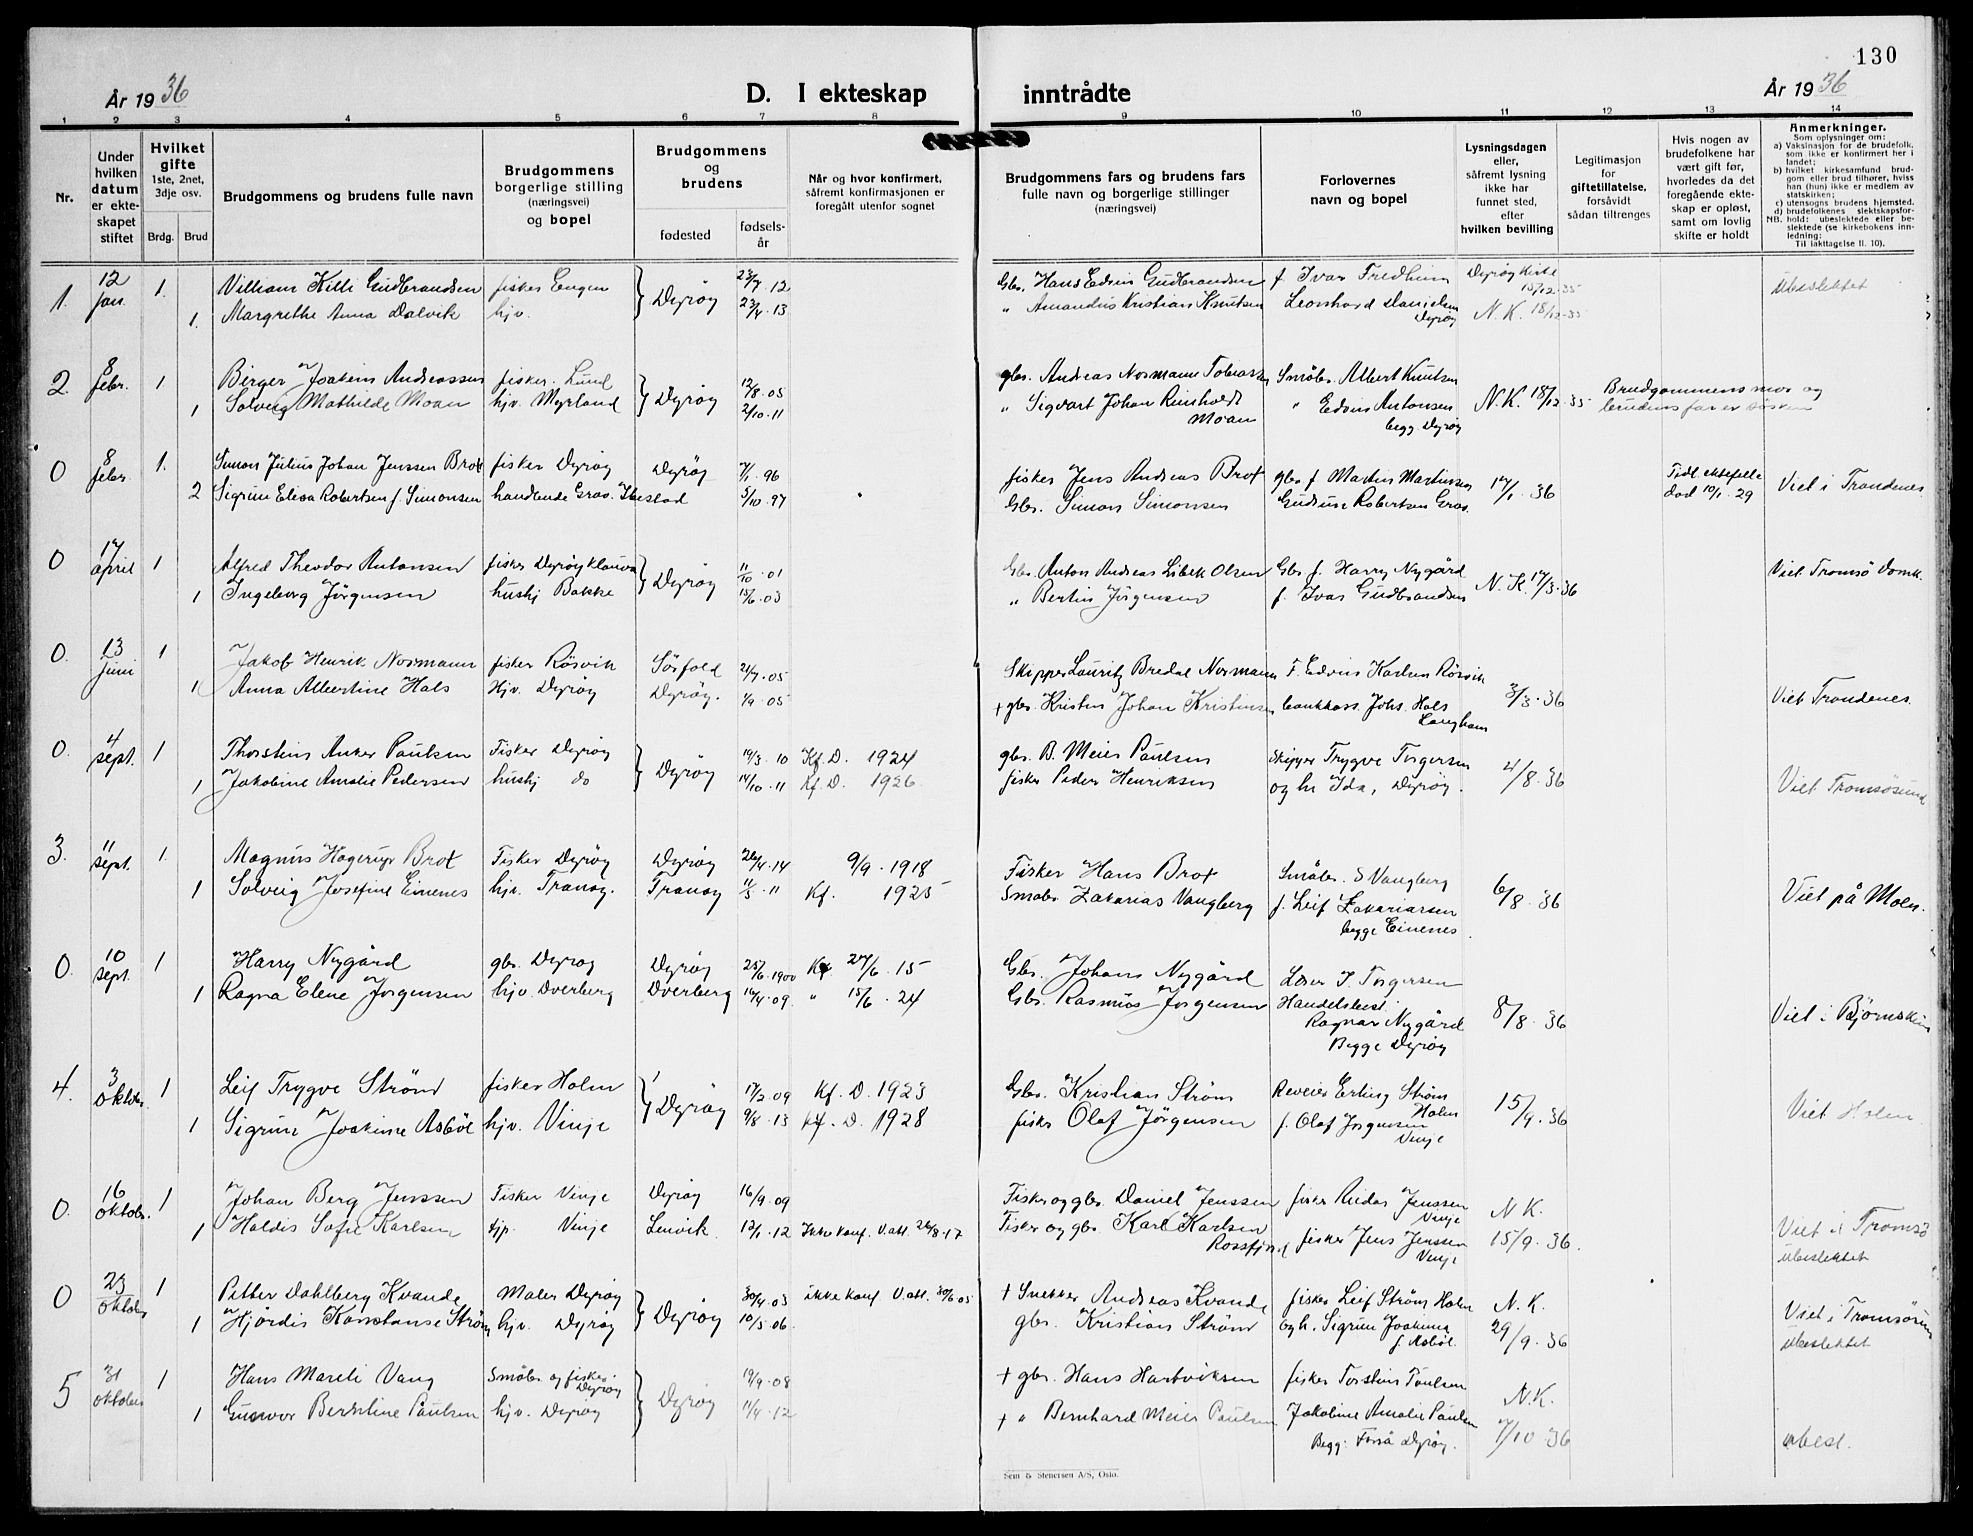 130
År 1936
D. I ekteskap inntrådte
År 1936
1 2 3 4 5 6 7 8 9 10 11 12 13 14
Nr.
Under hvilken datum er ekteskapet stiftet
Hvilket gifte 1ste, 2net, 3dje osv.
Brdg. Brud
Brudgommens og brudens fulle navn
Brudgommens borgerlige stilling (næringsvei) og bopel
Brudgommens og brudens
fødested
fødselsår
Når og hvor konfirmert, såfremt konfirmasjonen er foregått utenfor sognet
Brudgommens fars og brudens fars fulle navn og borgerlige stillinger (næringsvei)
Forlovernes navn og bopel
Lysningsdagen eller, såfremt lysning ikke har funnet sted, efter hvilken bevilling
Legitimasjon for giftetillatelse, forsåvidt sådan tiltrenges
Hvis nogen av brudefolkene har vært gift før, hvorledes da det foregående ekteskap er opløst, samt om lovlig skifte er holdt
Anmerkninger.
Som oplysninger om:
a) Vaksinasjon for de brudefolk, som ikke er konfirmert her i landet;
b) hvilket kirkesamfund brudgom eller brud tilhører, hviss han (hun) ikke er medlem av statskirken;
c) utensogns brudens hjemsted.
d) brudefolkenes slektskapsforhold: ubeslektede eller beslektede (se kirkebokens innledning:
NB.
Til iakttagelse II. 10).
1. 12 jan. 1. Villiam Killi Gudbrandsen fisker Eugen Dyrøy 23/7 12 Gbr. Hans Edvin Gudbrandsen f. Ivar Fredheim Dyrøy kirke 15/12-35 Ubeslektet
1. Margrethe Anna Dalvik hjv. 23/4 13 " Amandus Kristian Knutsen Leonhard Danielsen Dyrøy N.K. 18/12-35
2. 8 febr. 1 Birger Joakim Andreassen fisker. Lund Dyrøy 12/8.05 gbr. Andreas Normann Tobiassen Småbr. Albert Knutsen N.K. 18/12-35 Brudgommens mor og
1 Solveig Mathilde Moan hjv. Myrland 2/10.11 " Sigvart Johan Reinholdt Moan " Edvin Antonsen begg. Dyrøy brudens far er søsken
0 8 febr 1. Simon Julius Johan Jenssen Brox fisker Dyrøy Dyrøy 7/1.96 fisker Jens Andreas Brox gbr. f. Martin Martinsen 17/1.36 Tidl. ektefelle død 10/1.29 Viet i Trondenes
2 Sigrun Elisa Robertsen f. Simonsen handlende Grov. Ibestad 5/10.97 Gbr. Simon Simonsen Gudrun Robertsen Grov.
0 17 april 1 Alfred Theodor Antonsen fisker Dyrøy Klauva Dyrøy 11/10.01 Gbr. Anton Andreas Libek Olsen Gbr. f. Harry Nygård N.K. 17/3.36 Viet Tromsø Domk.
1 Ingeborg Jörgensen hushj Bakke 15/6.03 " Bertin Jörgensen f. Ivar Gudbrandsen
0. 13 juni 1 Jakob Henrik Normann fisker Rösvik Sörfold 21/7.05 Skipper Lauritz Bredal Normann F. Edvin Karlsen Rösvik 3/3.36 Viet Trondenes.
1 Anna Albertine Hals Hjv. Dyrøy Dyrøy. 1/9.05 + gbr. Kristen Johan Kristensen bankkass. Johs. Hals Langhamn
0. 4 sept. 1 Thorstein Anker Paulsen Fisker Dyrøy Dyrøy 19/3.10 Kf. D. 1924 gbr. B. Meier Paulsen Skipper Trygve Torgersen 4/8.36 Viet Tromsøsund
1 Jakobine Amalie Pedersen hushj do 14/10.11 Kf. D. 1926 fisker Peder Henriksen og hr Ida, Dyrøy.
3. 11 sept. 1. Magnus Hagerup Brox Fisker Dyrøy Dyrøy 26/4.14 9/9.1918 Fisker Hans Brox Småbr. S Vangberg 6/8.36 Viet på Moen.
1 Solveig Josefine Einenes hjv. Tranøy. Tranøy 11/5.11 Kf. 1925 Småbr. Zakarias Vangberg f. Leif Zakariassen begge Einenes.
0. 10 sept. 1 Harry Nygård gbr. Dyrøy Dyrøy 25/6.1900 Kf 27/6.15 Gbr. Johans Nygård Lærer J. Torgersen 8/8.36 Viet i Bjørnskinn
1 Ragna Elene Jorgensen hjv. Dverberg Dverberg 16/4.09. " 15/6.24 Gbr. Rasmus Jorgensen Handelsbest. Ragnar Nygård Begge Dyrøy
4. 3 oktober. 1 Leif Trygve Strönd fisker Holm Dyrøy 17/2.09 Kf. D. 1923 Gbr. Kristian Ström Reveier Erling Ström Holm 15/9.36 Viet Holm
1 Sigrun Joakime Asböl hjv. Vinje 9/8.13 kf. D. 1928 fisker Olaf Jörgensen f. Olaf Jorgensen Vinje
0. 16 oktobr. 1 Johan Berg Jenssen Fisker Vinje Dyrøy 16/9.09 Fisker og gbr. Daniel Jenssen fisker Reidar Jenssen Vinje N K. Viet i Tromsö
1 Haldis Sofie Karlsen tjp. Vinje Lenvik. 12/1.12 Ikke konf. V.att. 26/8.17 Fisker og gbr. Karl Karlsen Rossfjord fisker Jens Jenssen Vinje 15/9.36. ubeslektet
0 23 oktober 1 Petter Dahlberg Kvande Maler Dyrøy Dyrøy 30/4.03 ikke konf V.att. 30/6 05 + Snekker Andreas Kvande fisker Leif Ström Holm N.K. Viet i Tromsøsund
1 Hjördis Konstanse Ström hjv. Dyrøy 10/5.06. gbr. Kristian Strönd og h. Sigrun Joakime f. Asböl. 29/9.36 ubeslektet
5 31 oktober 1 Hans Mareli Vang Småbr. og fisker. Dyrøy Dyrøy 19/9.08 + gbr. Hans Hartviksen fisker Torstein Paulsen N.K.
1 Gunvor Berntine Paulsen hjv. Dyrøy 11/4.12 + " Bernhard Meier Paulsen Jakobine Amalie Paulsen Begg: Forså Dyrøy. 7/10 36 ubesl.
Sem & Stenersen A/S, Oslo.